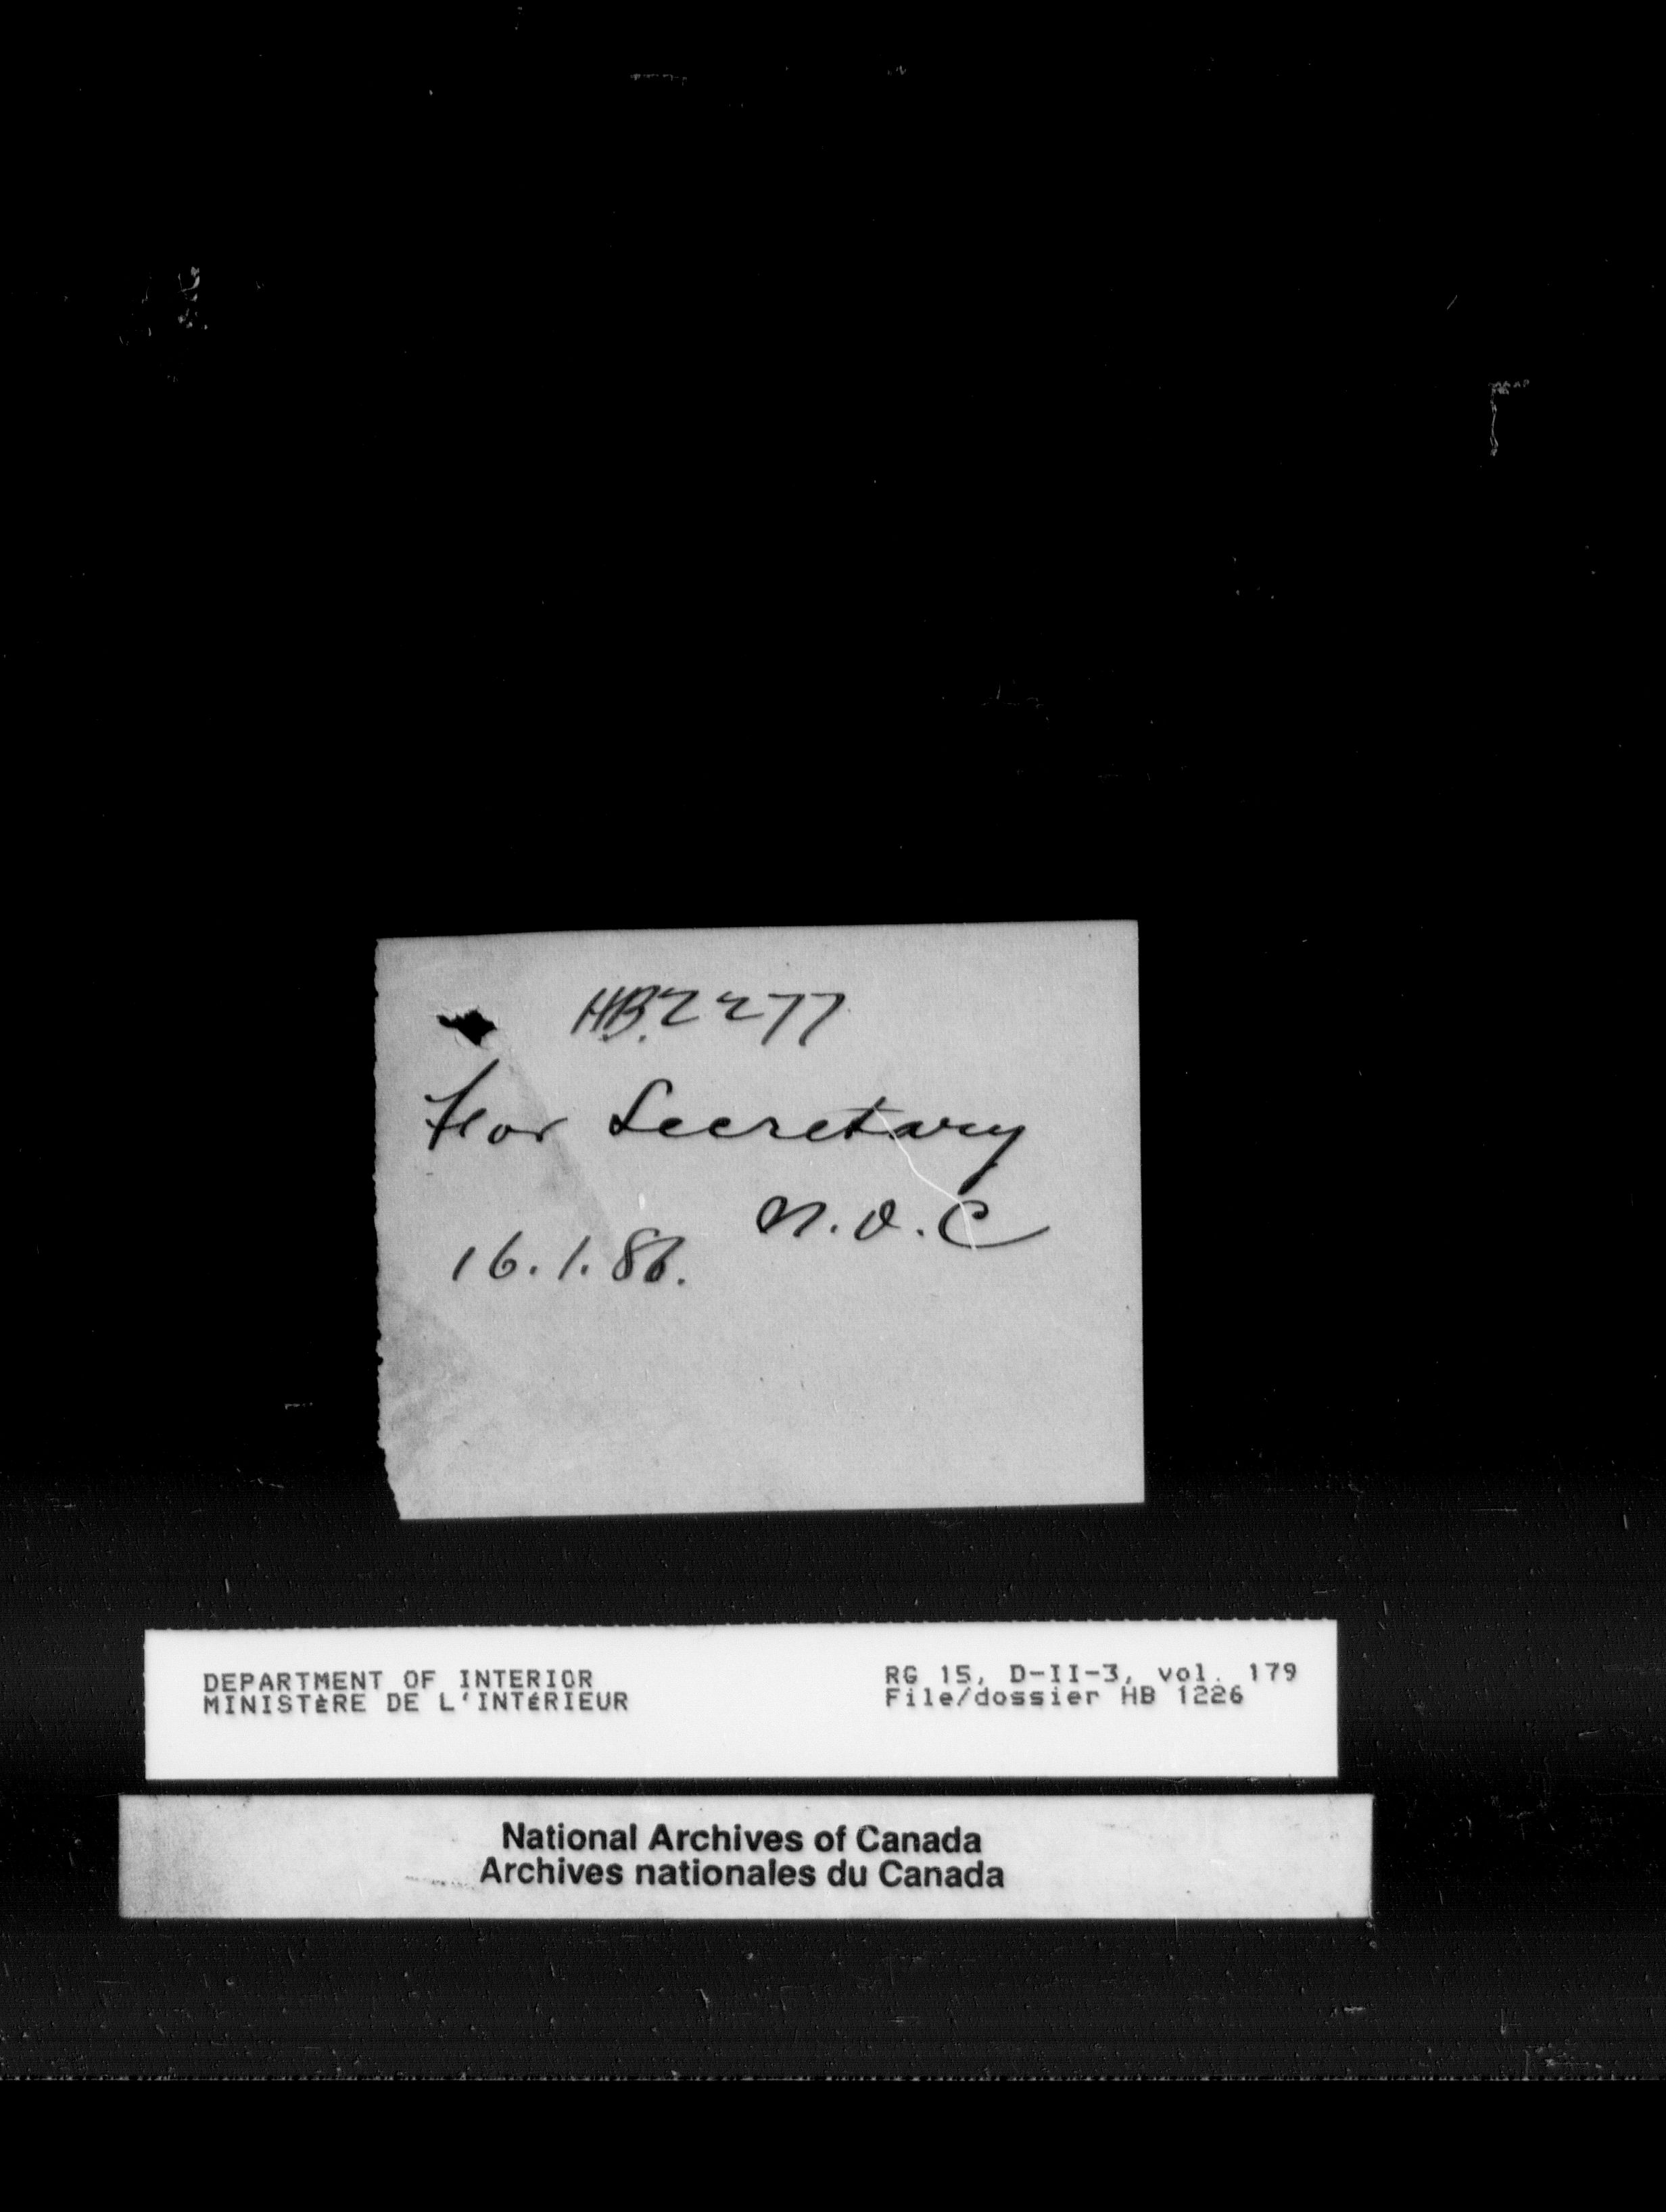 H.B. 2277
For Secretary
N.O.C
16.1.86.
DEPARTMENT OF INTERIOR
MINISTÈRE DE L'INTÉRIEUR
RG 15, D-II-3, vol. 179
File/dossier HB 1226
National Archives of Canada
Archives nationales du Canada